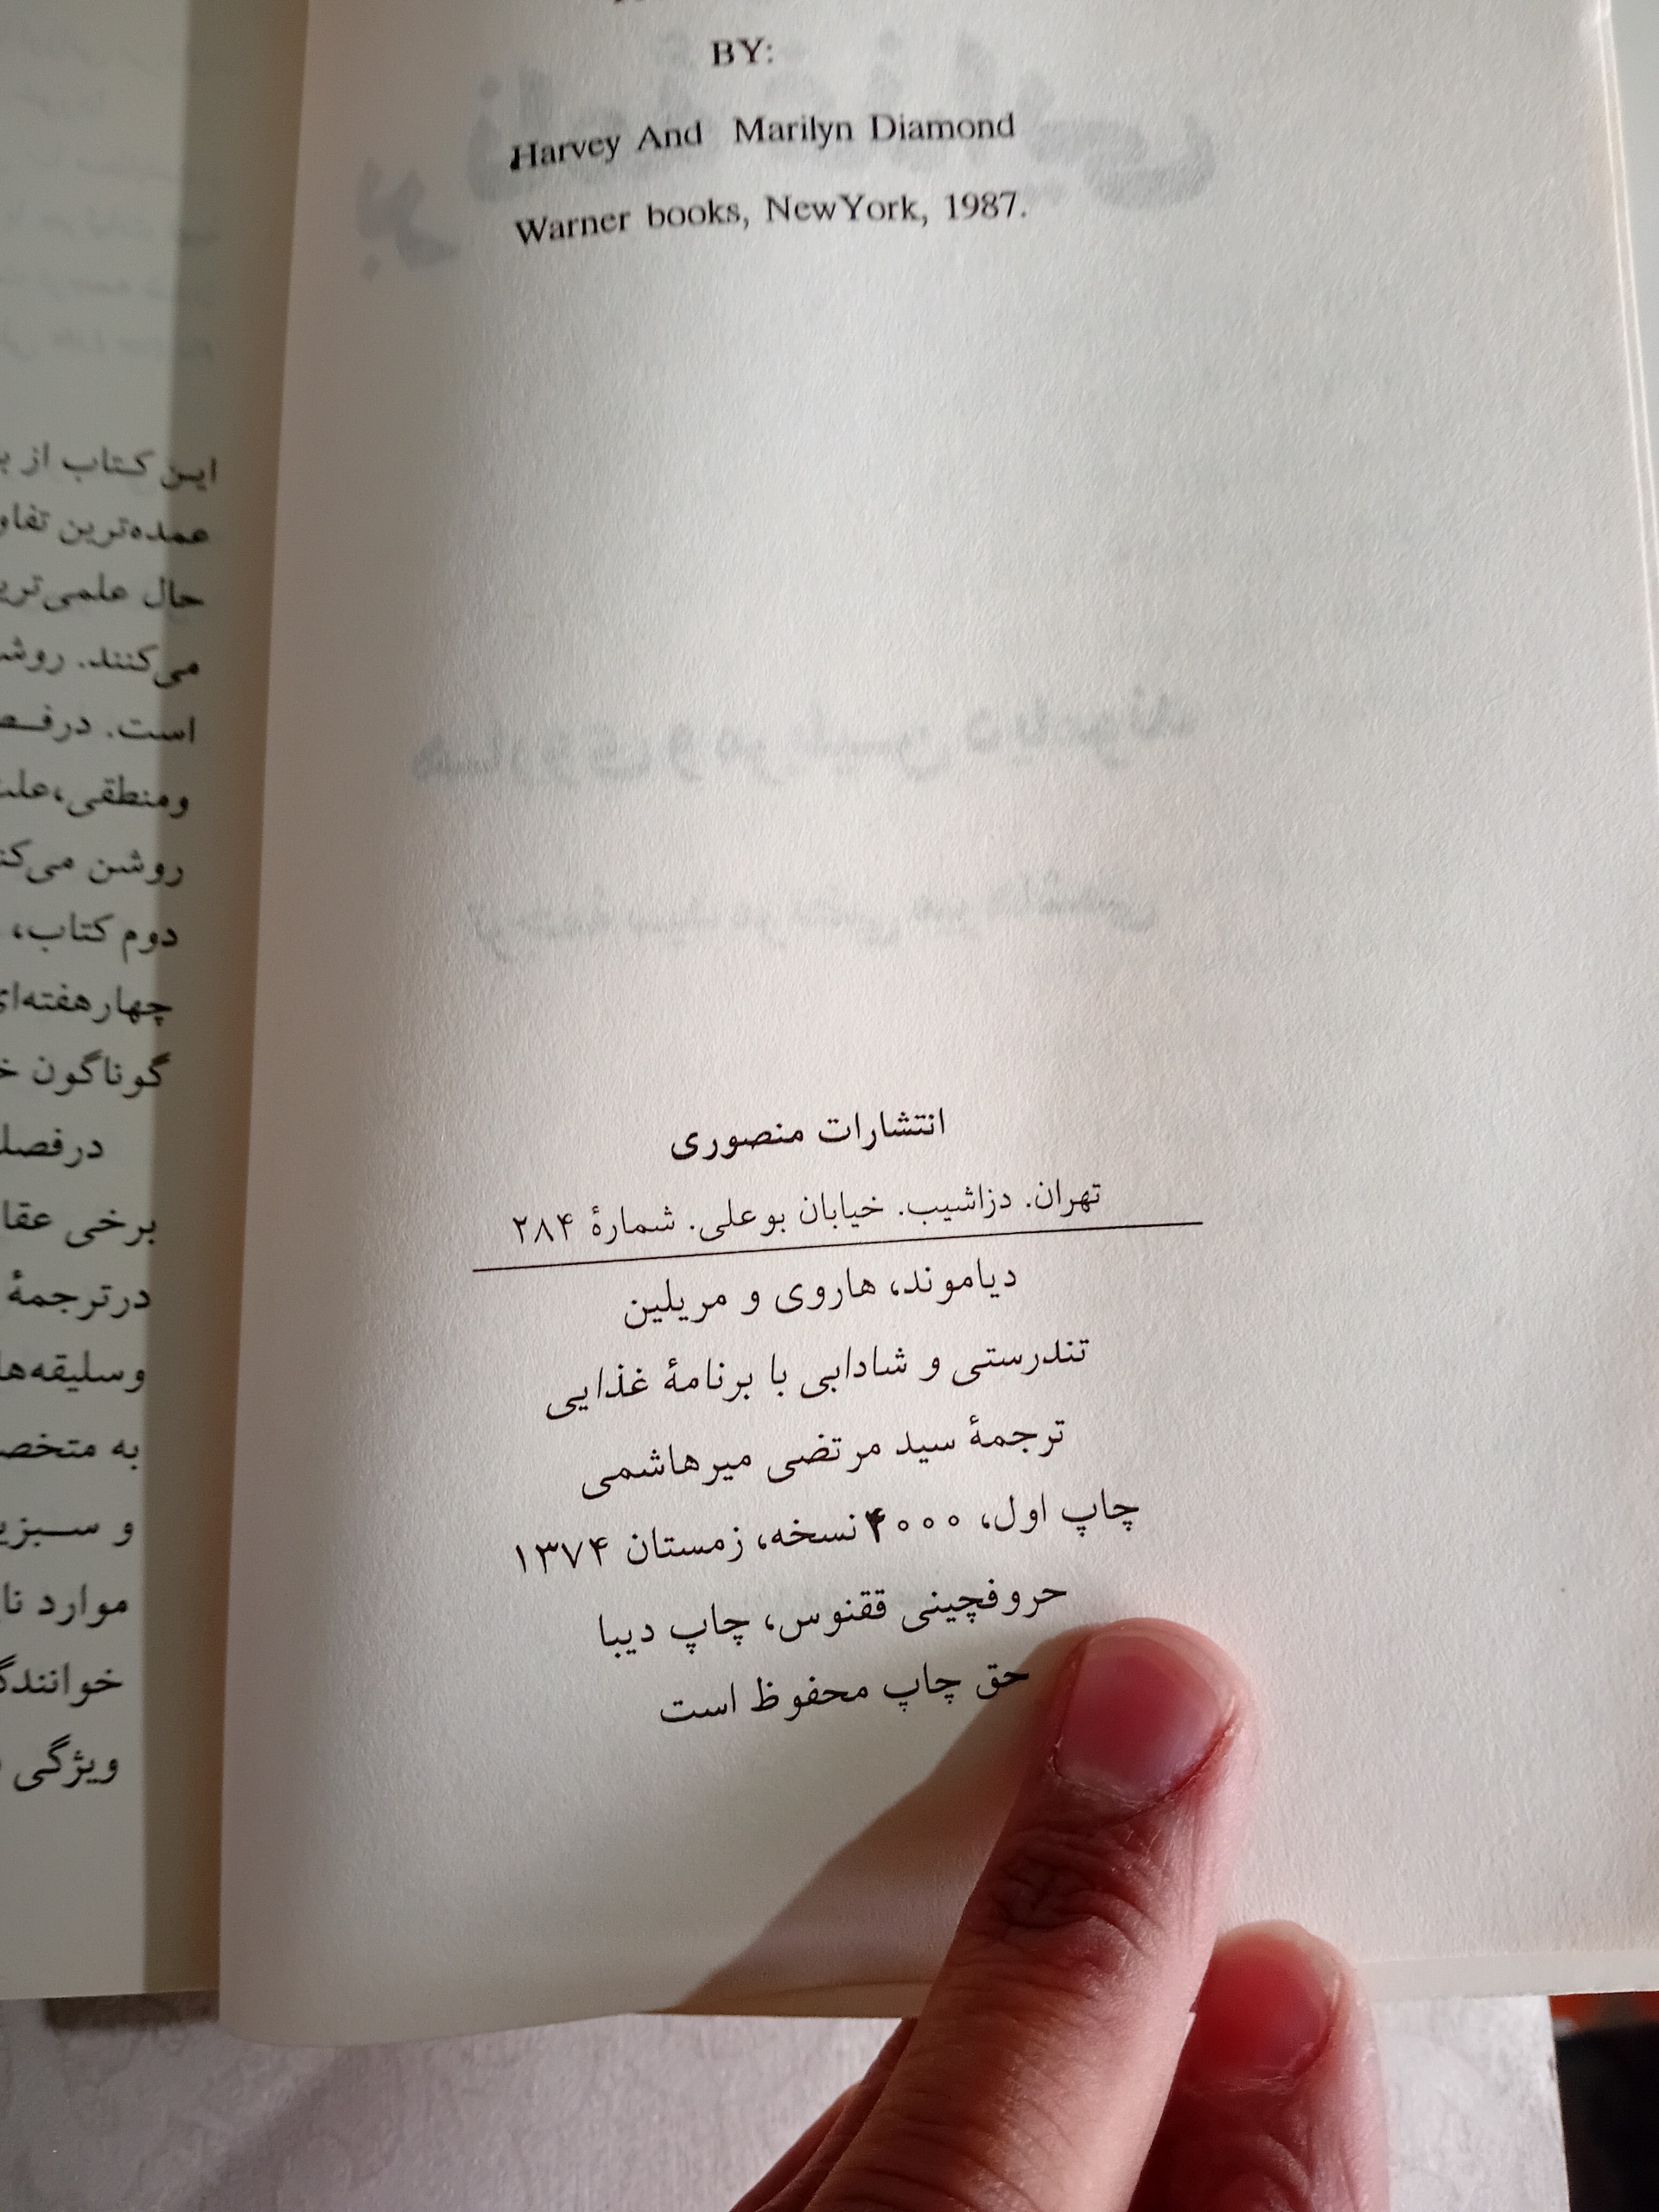 BY:
Harvey And Marilyn Diamond
Warner books, NewYork, 1987.
انتشارات منصوری
تهران. دزاشیب. خیابان بوعلی. شمارهٔ ۲۸۴
دیاموند، هاروی و مریلین
تندرستی و شادابی با برنامهٔ غذایی
ترجمهٔ سید مرتضی میرهاشمی
چاپ اول، ۴۰۰۰ نسخه، زمستان ۱۳۷۴
حروفچینی ققنوس، چاپ دیبا
حق چاپ محفوظ است
این کتاب از
عمده‌ترین
حال
می‌کنند.
است.
ومنطقی،
روشن
دوم کتاب،
گوناگون
برخی
درترجمهٔ
به
و
موارد
ویژگی